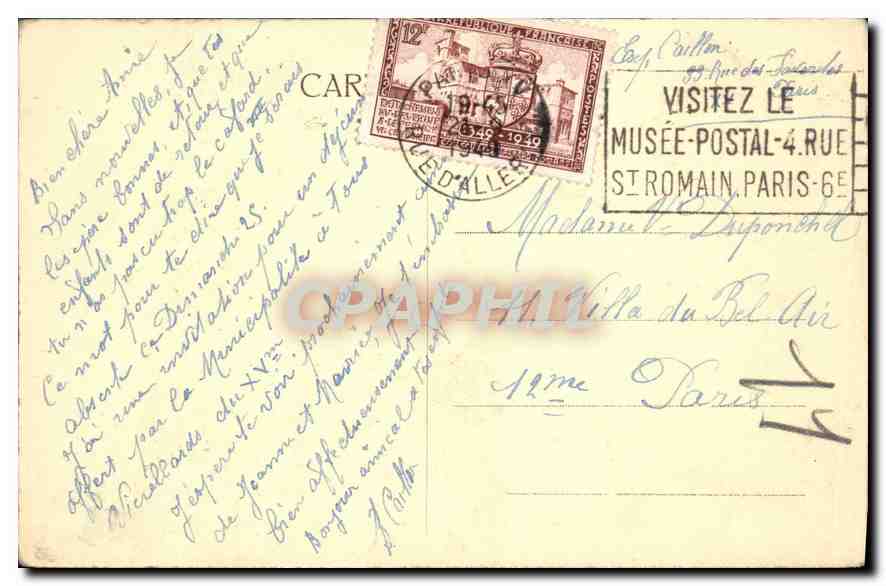 Bien chère Amie
Sans nouvelles, je
les espère bonnes, et que tes
enfants sont de retour, et que
tu n'as pas eu trop le cafard.
Ce mot pour te dire que je serais
absent ce Dimanche 25.
J'ai une invitation pour un déjeuner
offert par la Municipalité à tous
Vieillards du XVme
J'espère te voir prochainement
de Jeanne et Maurice, je t'embrasse
bien affectueusement
Bonjour amical à tes
Caillon
CAR
12F
REPUBLIQUE FRANÇAISE
POSTES
RATTACHEMENT
DU DAUPHINÉ
A LA FRANCE
1349-1949
19 H 45
1949
RUE D'ALLERAY
Exp. Caillon
99 Rue des
Paris
VISITEZ LE
MUSÉE-POSTAL-4.RUE
ST ROMAIN.PARIS-6E
Madame Ve Duponchel
11 Villa du Bel Air
12me Paris
CPAPHIL